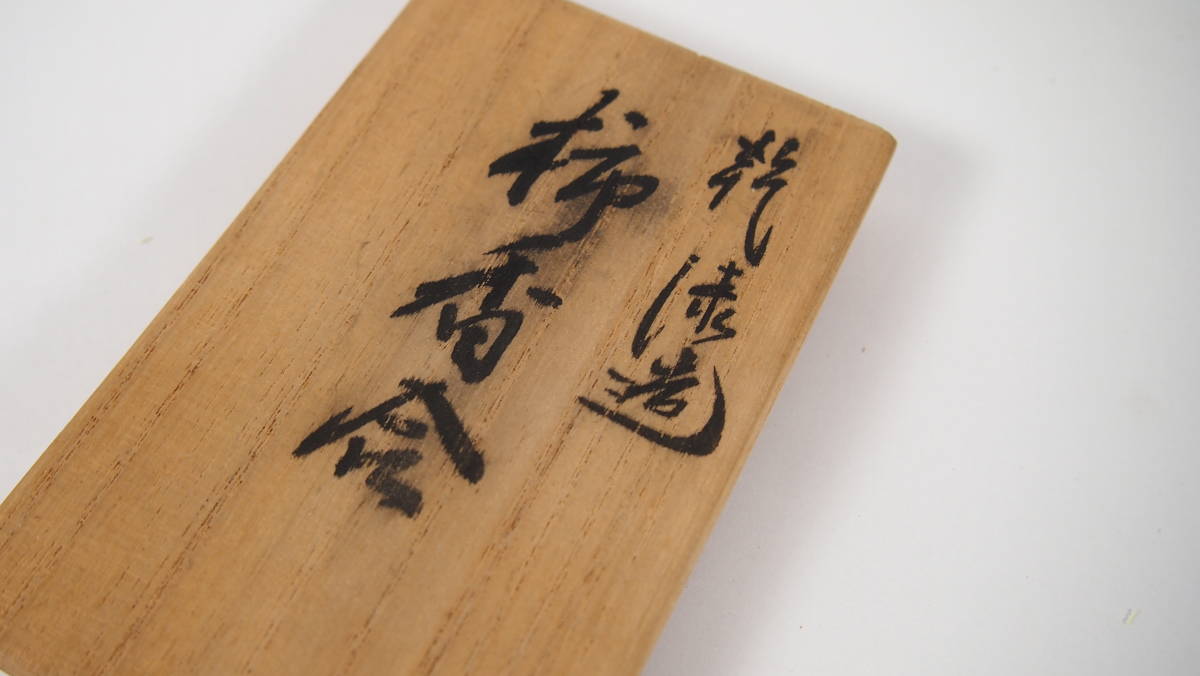 乾漆造
柿香合